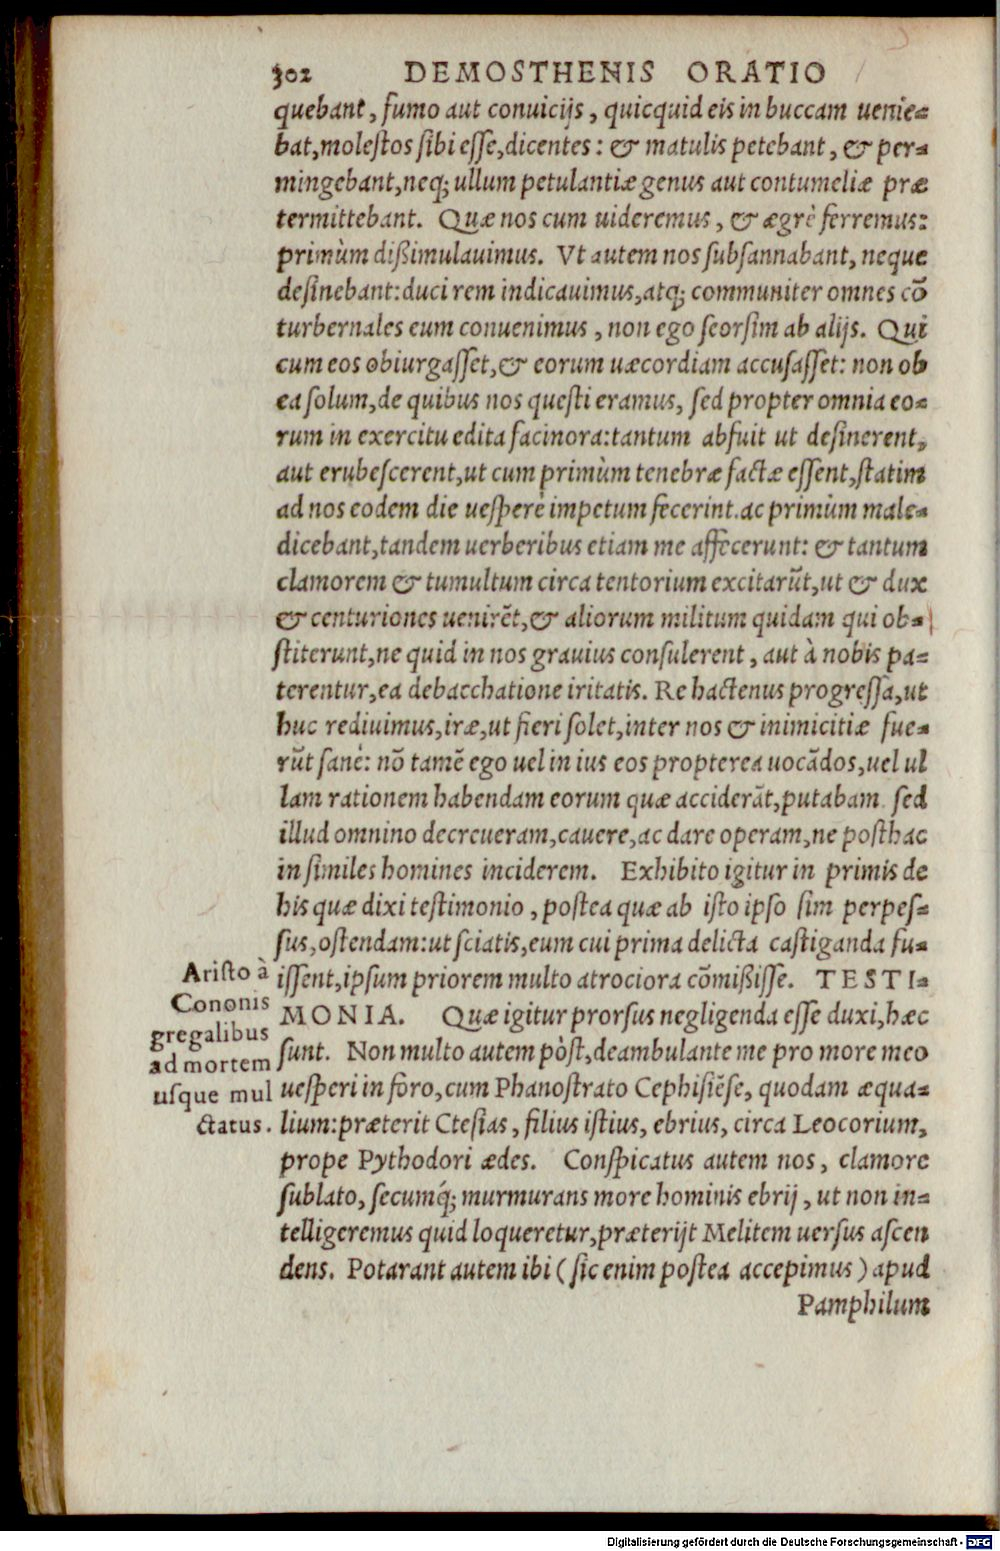 302 DEMOSTHENIS ORATIO
quebant, fumo aut conuicijs, quicquid eis in buccam uenie-
bat, molestos sibi esse, dicentes: & matulis petebant, & per-
mingebant, neq; ullum petulantiæ genus aut contumeliæ præ
termittebant. Quæ nos cum uideremus, & ægrè ferremus:
primùm dißimulauimus. Vt autem nos subsannabant, neque
desinebant: duci rem indicauimus, atq; communiter omnes cõ
turbernales eum conuenimus, non ego seorsim ab alijs. Qui
cum eos obiurgasset, & eorum uæcordiam accusasset: non ob
ea solum, de quibus nos questi eramus, sed propter omnia eo-
rum in exercitu edita facinora: tantum abfuit ut desinerent,
aut erubescerent, ut cum primùm tenebræ factæ essent, statim
ad nos eodem die uesperè impetum fecerint. ac primùm male-
dicebant, tandem uerberibus etiam me affecerunt: & tantum
clamorem & tumultum circa tentorium excitarũt, ut & dux
& centuriones uenirẽt, & aliorum militum quidam qui ob-
stiterunt, ne quid in nos grauius consulerent, aut à nobis pa-
terentur, ea debacchatione iritatis. Re hactenus progressa, ut
huc rediuimus, iræ, ut fieri solet, inter nos & inimicitiæ fue-
rũt sanè: nõ tamẽ ego uel in ius eos propterea uocãdos, uel ul
lam rationem habendam eorum quæ acciderãt, putabam. sed
illud omnino decreueram, cauere, ac dare operam, ne posthac
in similes homines inciderem. Exhibito igitur in primis de
his quæ dixi testimonio, postea quæ ab isto ipso sim perpes-
sus, ostendam: ut sciatis, eum cui prima delicta castiganda fu-
issent, ipsum priorem multo atrociora cõmißisse. TESTI-
MONIA. Quæ igitur prorsus negligenda esse duxi, hæc
sunt. Non multo autem pòst, deambulante me pro more meo
uesperi in foro, cum Phanostrato Cephisiẽse, quodam æqua-
lium: præterit Ctesias, filius istius, ebrius, circa Leocorium,
prope Pythodori ædes. Conspicatus autem nos, clamore
sublato, secumq́; murmurans more hominis ebrij, ut non in-
telligeremus quid loqueretur, præterijt Melitem uersus ascen
dens. Potarant autem ibi (sic enim postea accepimus) apud
Pamphilum
Aristo à
Cononis
gregalibus
ad mortem
usque mul
ctatus.
Digitalisierung gefördert durch die Deutsche Forschungsgemeinschaft - DFG